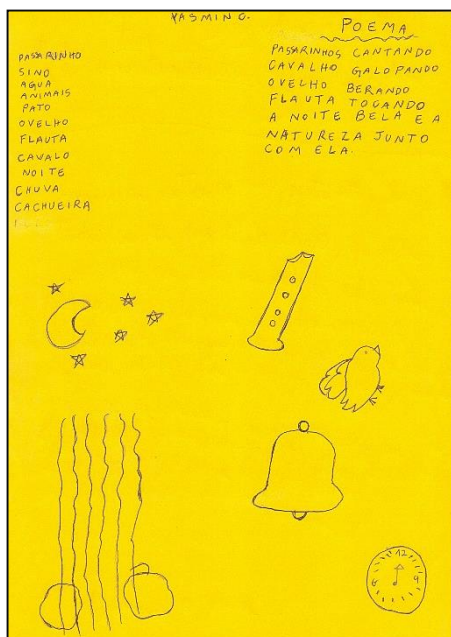 YASMIN C.
PASSARINHO
SINO
AGUA
ANIMAIS
PATO
OVELHO
FLAUTA
CAVALO
NOITE
CHUVA
CACHUEIRA
POEMA
PASSARINHOS CANTANDO
CAVALHO GALOPANDO
OVELHO BERANDO
FLAUTA TOCANDO
A NOITE BELA E A
NATUREZA JUNTO
COM ELA.
12